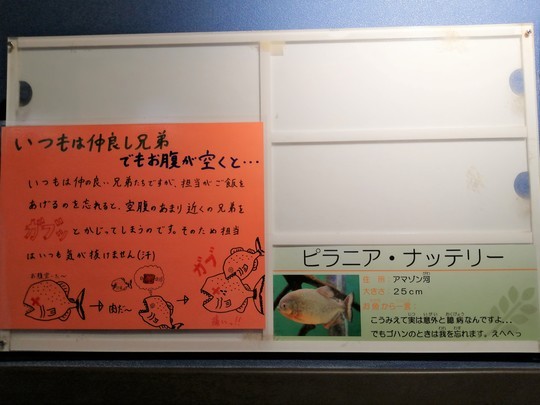 いつもは仲良し兄弟
でもお腹が空くと・・・
いつもは仲の良い兄弟たちですが、担当がご飯を
あげるのを忘れると、空腹のあまり近くの兄弟を
ガブッとかじってしまうのです。そのため担当
はいつも気が抜けません(汗)
お腹空いた〜
肉だ〜
ガブ
痛い!!
ピラニア・ナッテリー
アマゾン河
大きさ 25cm
お魚から一言
こうみえて実は意外と臆病なんですよ...
でもゴハンのときは我を忘れます。えへへっ